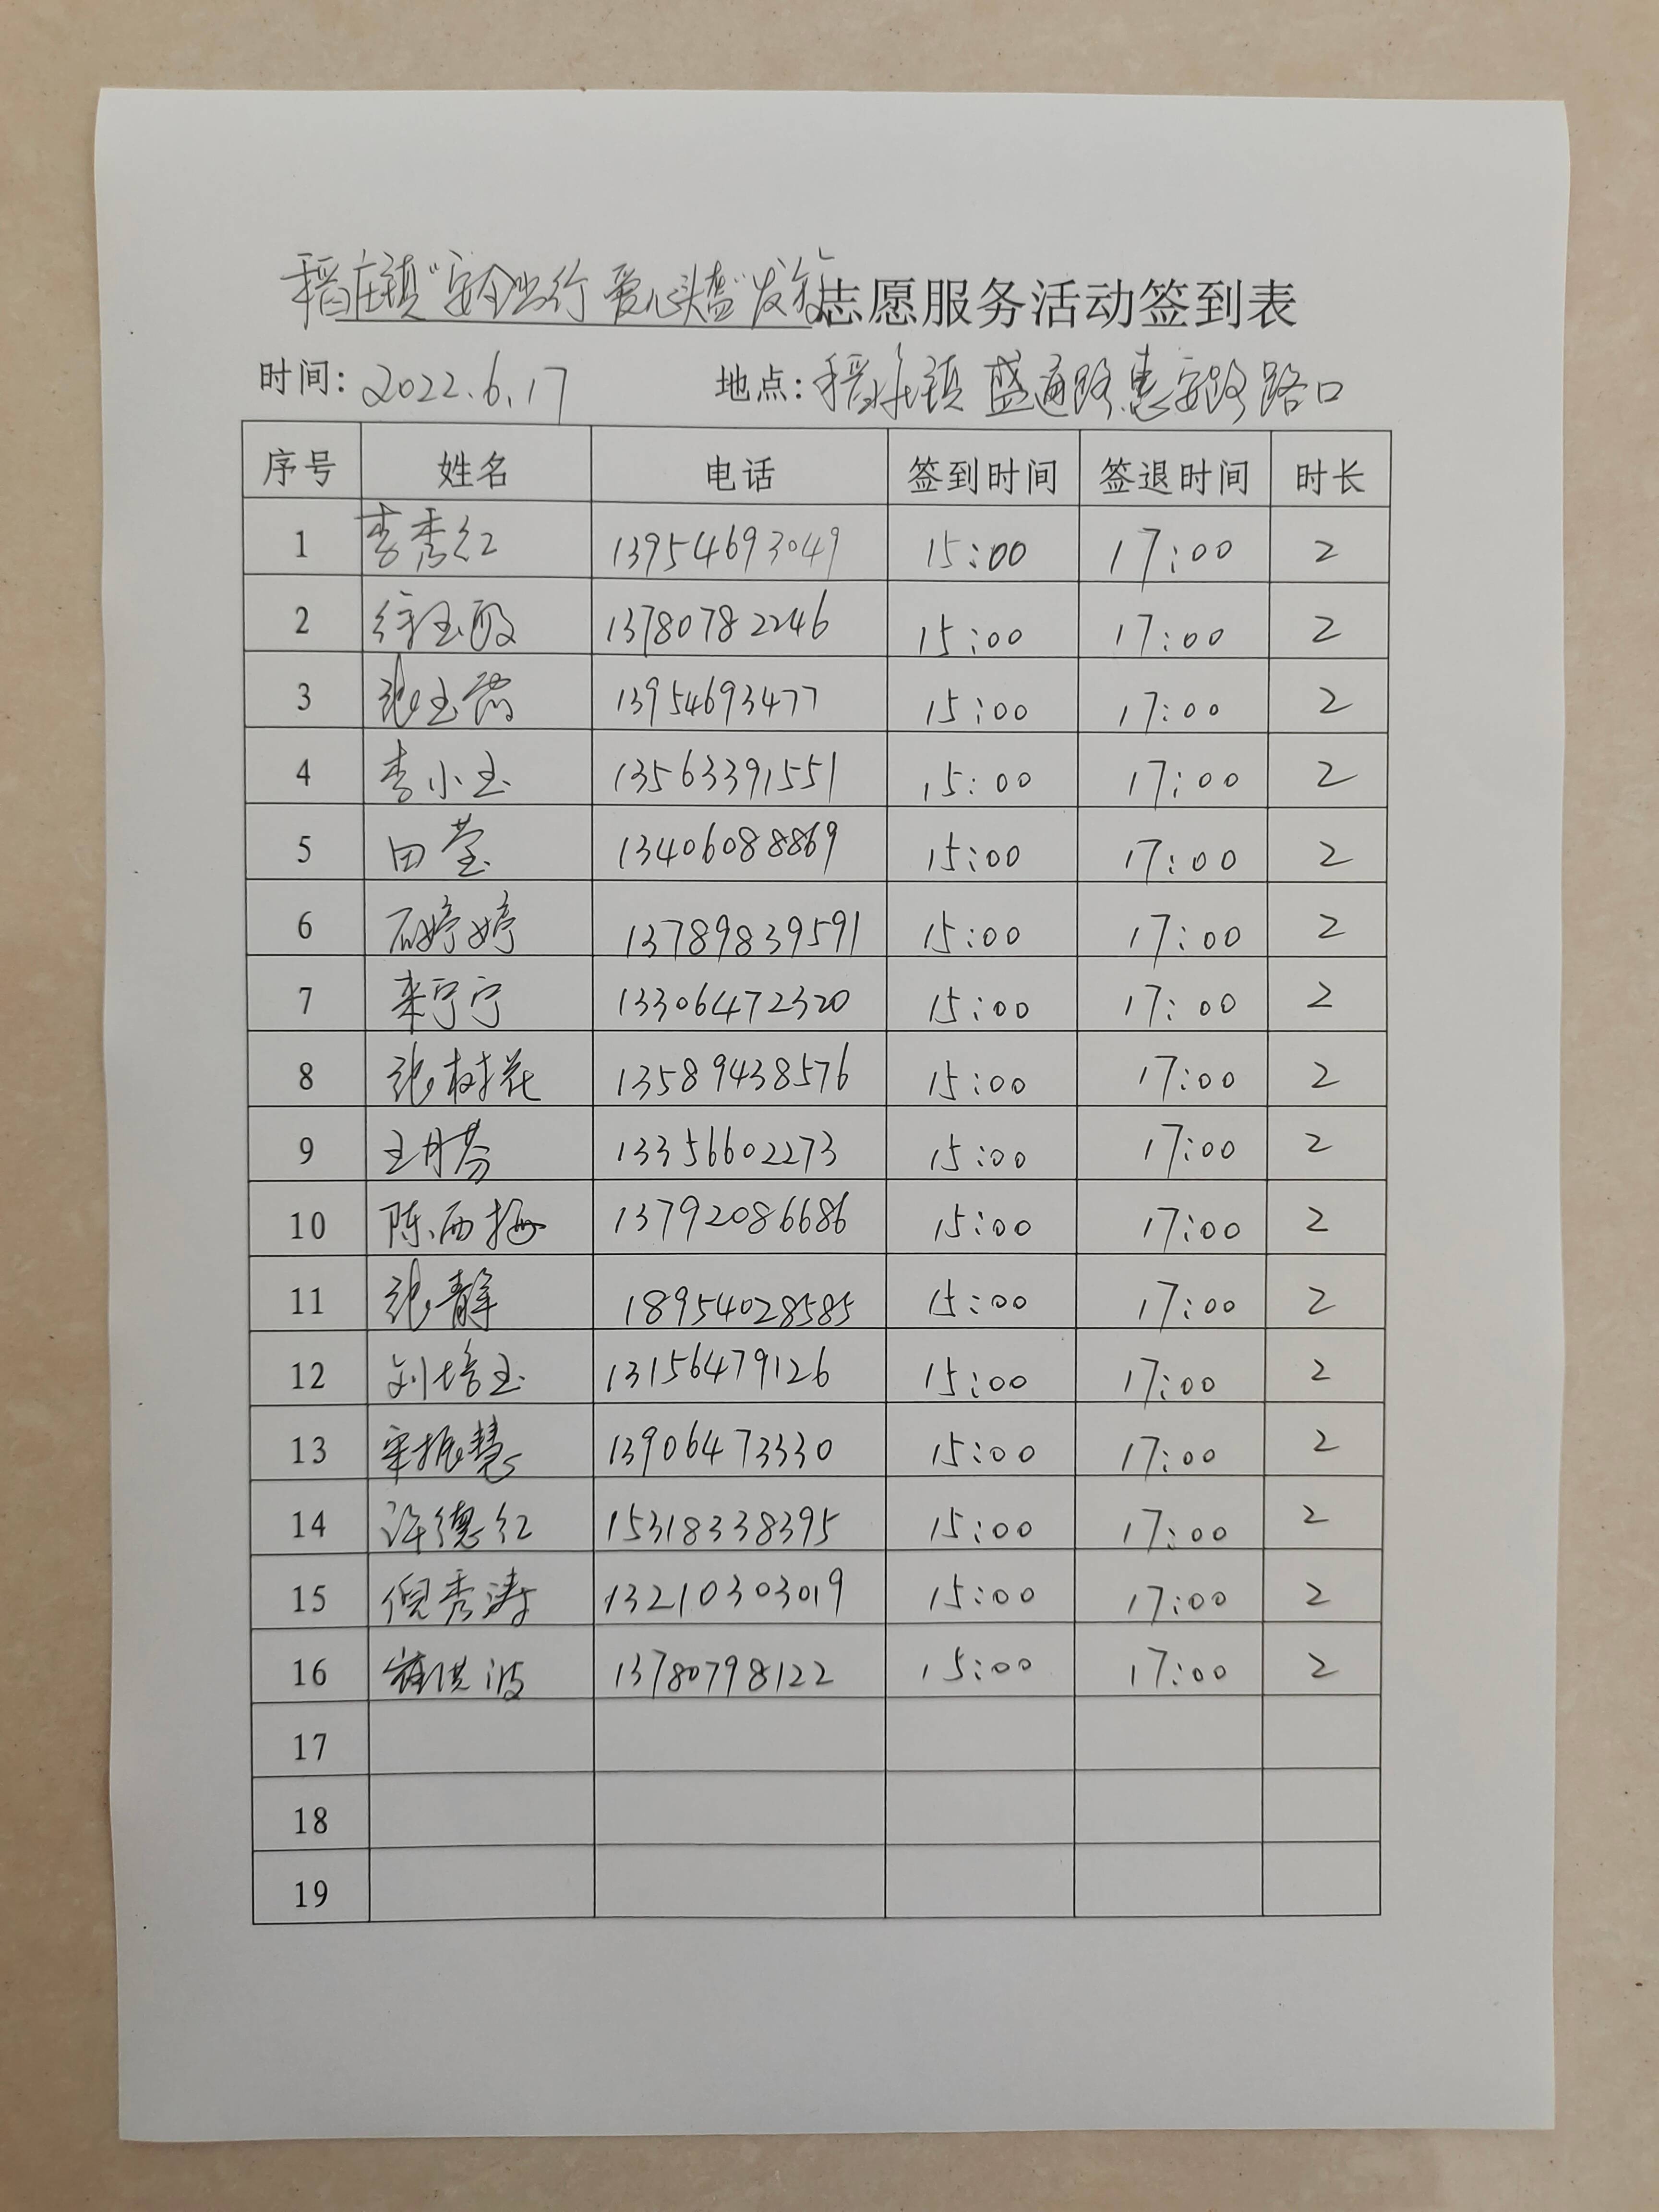 稻庄镇“安全出行 爱心头盔”发放志愿服务活动签到表
时间：2022.6.17 地点：稻庄镇盛通路惠安路路口
序号 姓名 电话 签到时间 签退时间 时长
1 李秀红 13954693049 15:00 17:00 2
2 徐玉 13780782246 15:00 17:00 2
3 张玉 13954693477 15:00 17:00 2
4 李小玉 13563391551 15:00 17:00 2
5 田莹 13406088869 15:00 17:00 2
6 石婷婷 13789839591 15:00 17:00 2
7 宁宁 13306472320 15:00 17:00 2
8 张树花 13589438576 15:00 17:00 2
9 王丹芬 13356602273 15:00 17:00 2
10 陈西梅 13792086686 15:00 17:00 2
11 张静 18954028585 15:00 17:00 2
12 刘培玉 13156479126 15:00 17:00 2
13 宋振慧 13906473330 15:00 17:00 2
14 许德红 15318338395 15:00 17:00 2
15 倪秀涛 13210303019 15:00 17:00 2
16 崔洪波 13780798122 15:00 17:00 2
17
18
19